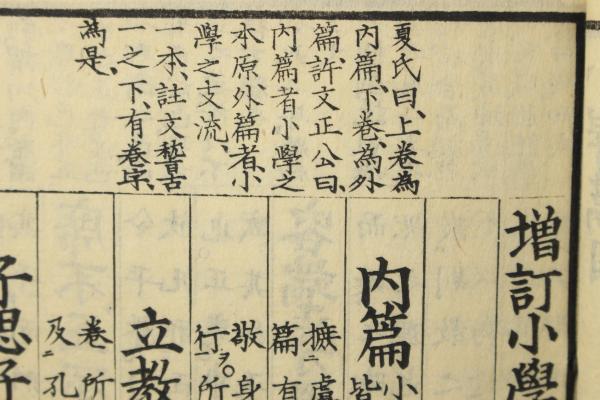 夏氏曰、上卷為
內篇、下卷、為外
篇、許文正公曰、
內篇者小學之
本原外篇者、小
學之支流、
一本、註文稽古
一之下、有卷字、
為是、
增訂小學
內篇
小
皆
摭ニ虞
篇有
敬身
行一ヲ○所
立教
卷所
及ニ孔
子思子